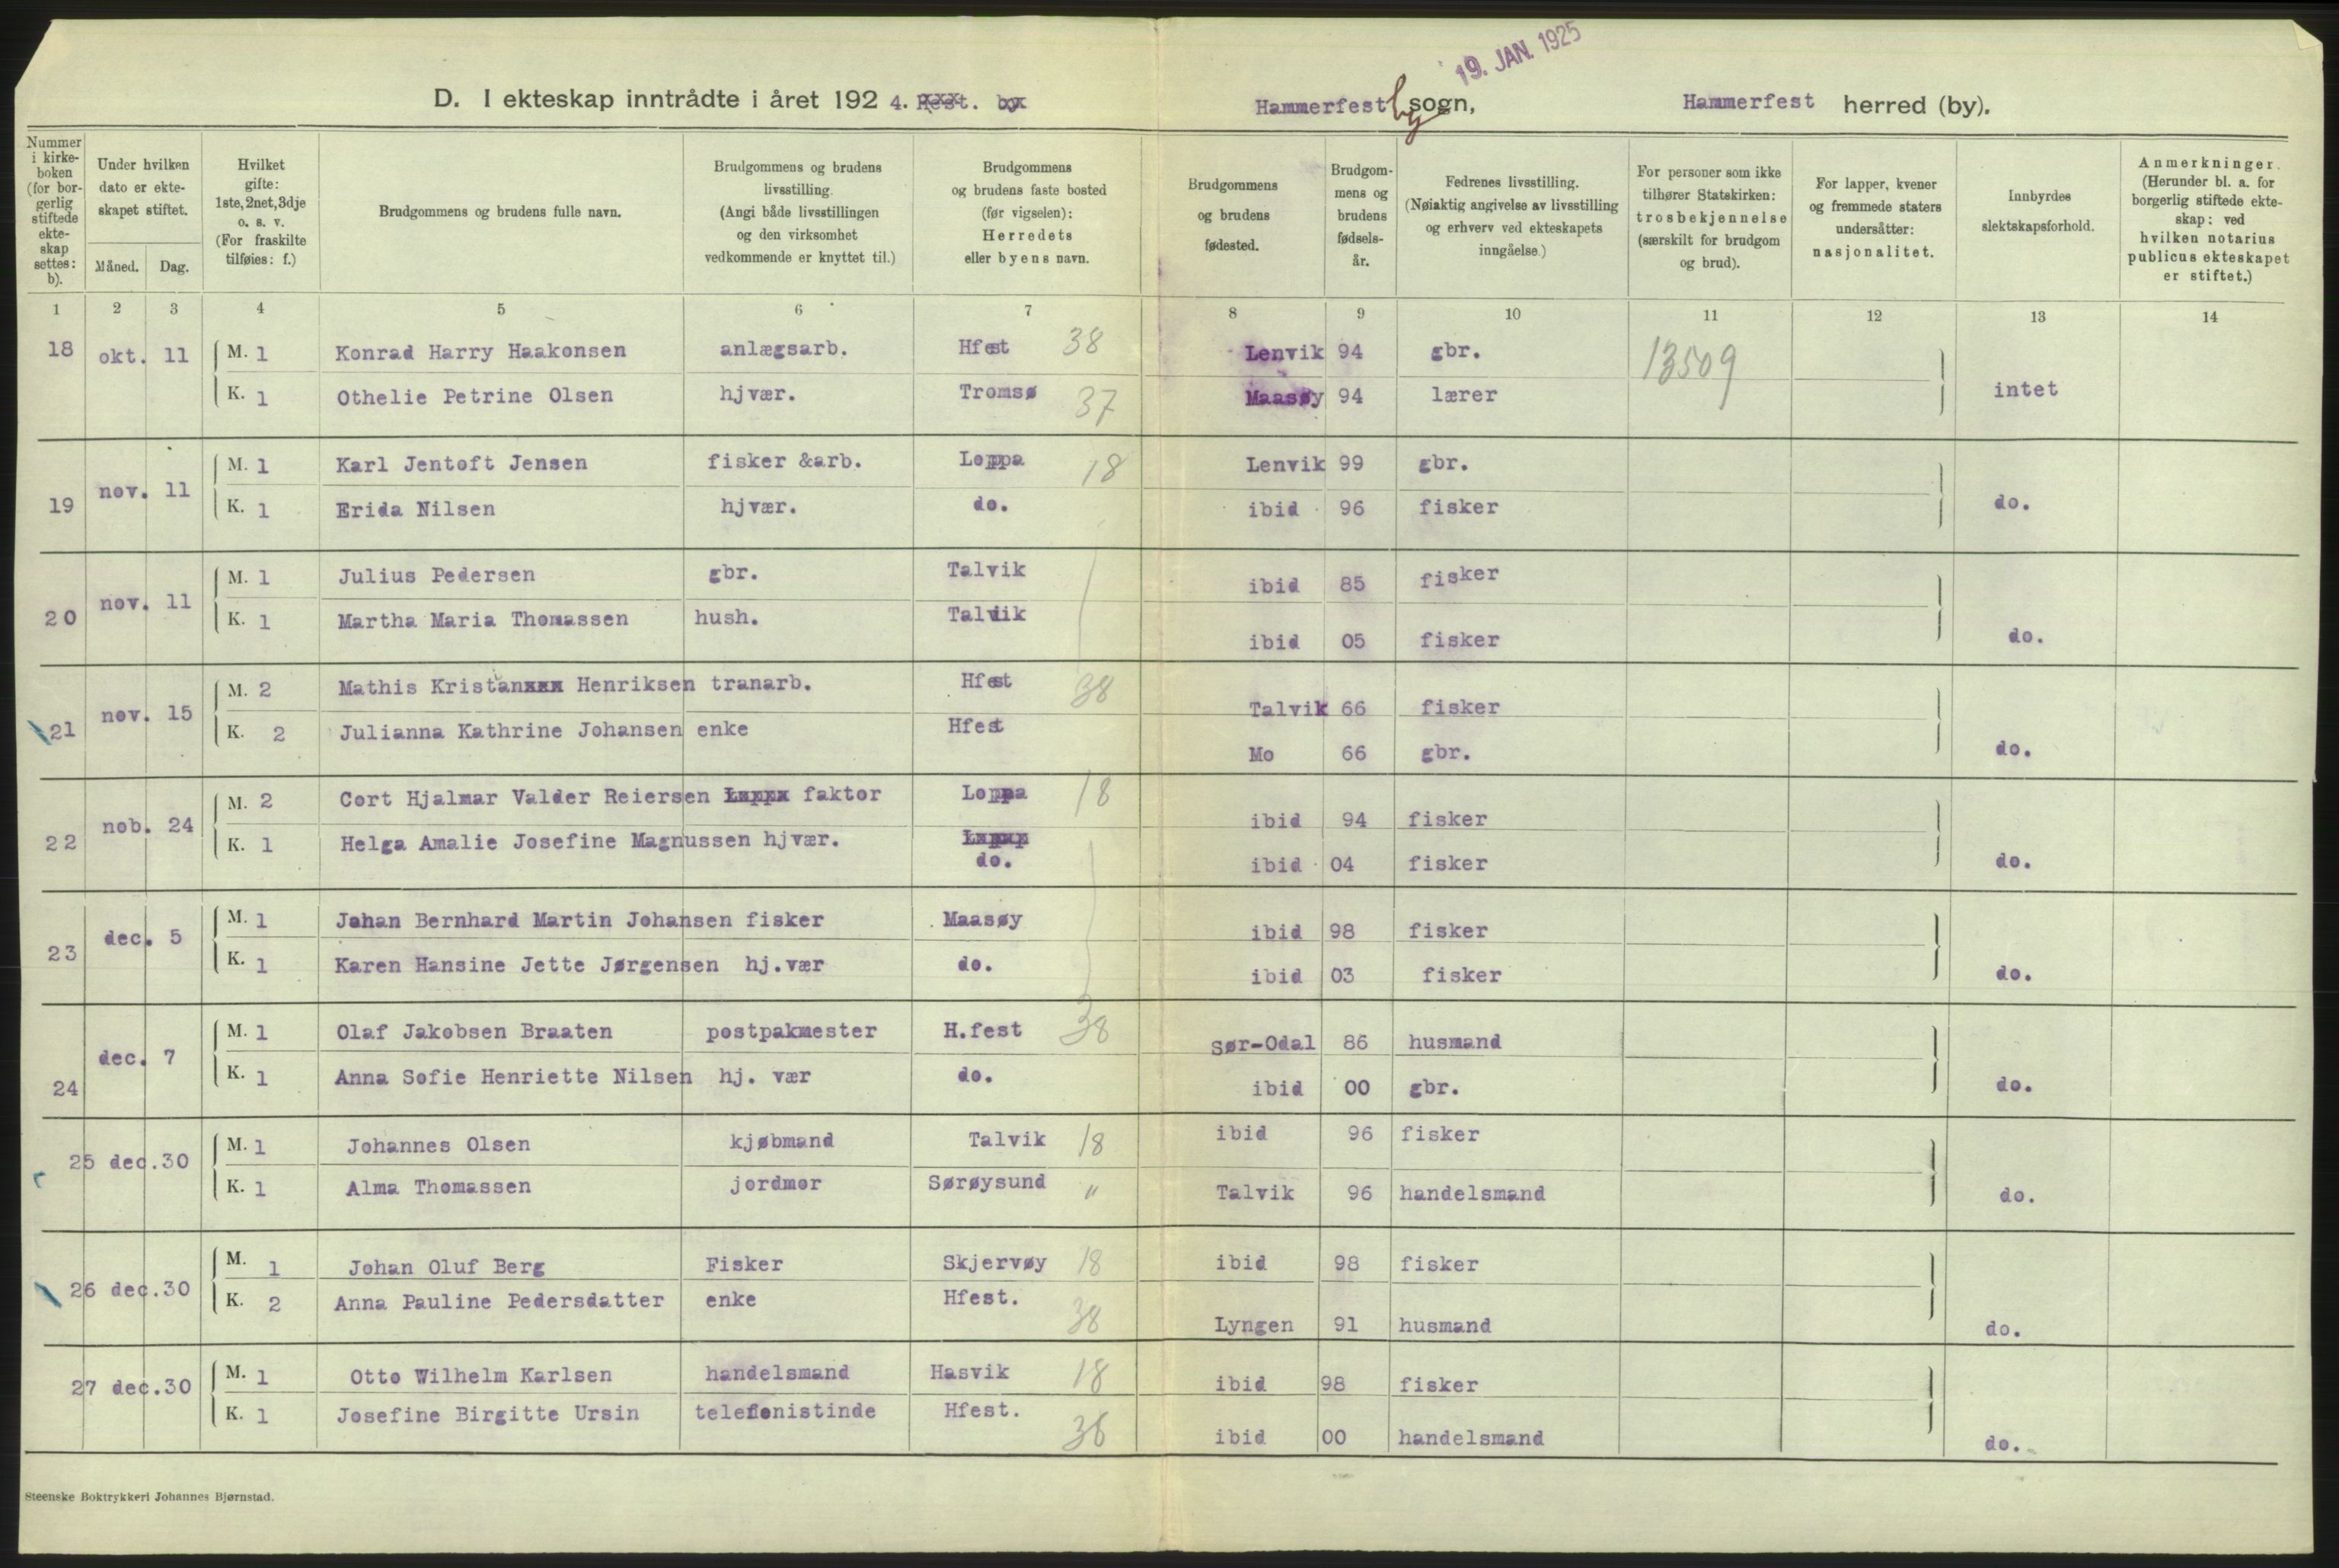 19. JAN. 1925
D. I ekteskap inntrådte i året 192 4. Rest. by Hammerfest by sogn, Hammerfest herred (by).
Nummer i kirkeboken (for borgerlig stiftede ekteskap settes: b).
Under hvilken dato er ekteskapet stiftet.
Måned. Dag.
Hvilket gifte: 1ste, 2net, 3dje o. s. v. (For fraskilte tilføies: f.)
Brudgommens og brudens fulle navn.
Brudgommens og brudens livsstilling. (Angi både livsstillingen og den virksomhet vedkommende er knyttet til.)
Brudgommens og brudens faste bosted (før vigselen): Herredets eller byens navn.
Brudgommens og brudens fødested.
Brudgommens og brudens fødselsår.
Fedrenes livsstilling. (Nøiaktig angivelse av livsstilling og erhverv ved ekteskapets inngåelse.)
For personer som ikke tilhører Statskirken: trosbekjennelse (særskilt for brudgom og brud).
For lapper, kvener og fremmede staters undersåtter: nasjonalitet.
Innbyrdes slektskapsforhold.
Anmerkninger. (Herunder bl. a. for borgerlig stiftede ekteskap: ved hvilken notarius publicus ekteskapet er stiftet.)
1 2 3 4 5 6 7 8 9 10 11 12 13 14
18 okt. 11 M. 1 Konrad Harry Haakonsen anlægsarb. Hfest 38 Lenvik 94 gbr. 13509
K. 1 Othelie Petrine Olsen hjvær. Tromsø 37 Maasøy 94 lærer intet
19 nov. 11 M. 1 Karl Jentoft Jensen fisker &arb. Loppa 18 Lenvik 99 gbr.
K. 1 Erida Nilsen hjvær. do. ibid 96 fisker do.
20 nov. 11 M. 1 Julius Pedersen gbr. Talvik ibid 85 fisker
K. 1 Martha Maria Thomassen hush. Talvik ibid 05 fisker do.
21 nov. 15 M. 2 Mathis Kristanxxx Henriksen tranarb. Hfest 38 Talvik 66 fisker
K. 2 Julianna Kathrine Johansen enke Hfest Mo 66 gbr. do.
22 nob. 24 M. 2 Cort Hjalmar Valder Reiersen faktor Loppa 18 ibid 94 fisker
K. 1 Helga Amalie Josefine Magnussen hjvær. do. ibid 04 fisker do.
23 dec. 5 M. 1 Johan Bernhard Martin Johansen fisker Maasøy ibid 98 fisker
K. 1 Karen Hansine Jette Jørgensen hj.vær do. ibid 03 fisker do.
24 dec. 7 M. 1 Olaf Jakobsen Braaten postpakmester H.fest 38 Sør-Odal 86 husmand
K. 1 Anna Sofie Henriette Nilsen hj. vær do. ibid 00 gbr. do.
25 dec.30 M. 1 Johannes Olsen kjøbmand Talvik 18 ibid 96 fisker
K. 1 Alma Thomassen jordmor Sørøysund " Talvik 96 handelsmand do.
26 dec.30 M. 1 Johan Oluf Berg Fisker Skjervøy 18 ibid 98 fisker
K. 2 Anna Pauline Pedersdatter enke Hfest. 38 Lyngen 91 husmand do.
27 dec.30 M. 1 Otto Wilhelm Karlsen handelsmand Hasvik 18 ibid 98 fisker
K. 1 Josefine Birgitte Ursin telefonistinde Hfest. 38 ibid 00 handelsmand do.
Steenske Boktrykkeri Johannes Bjørnstad.